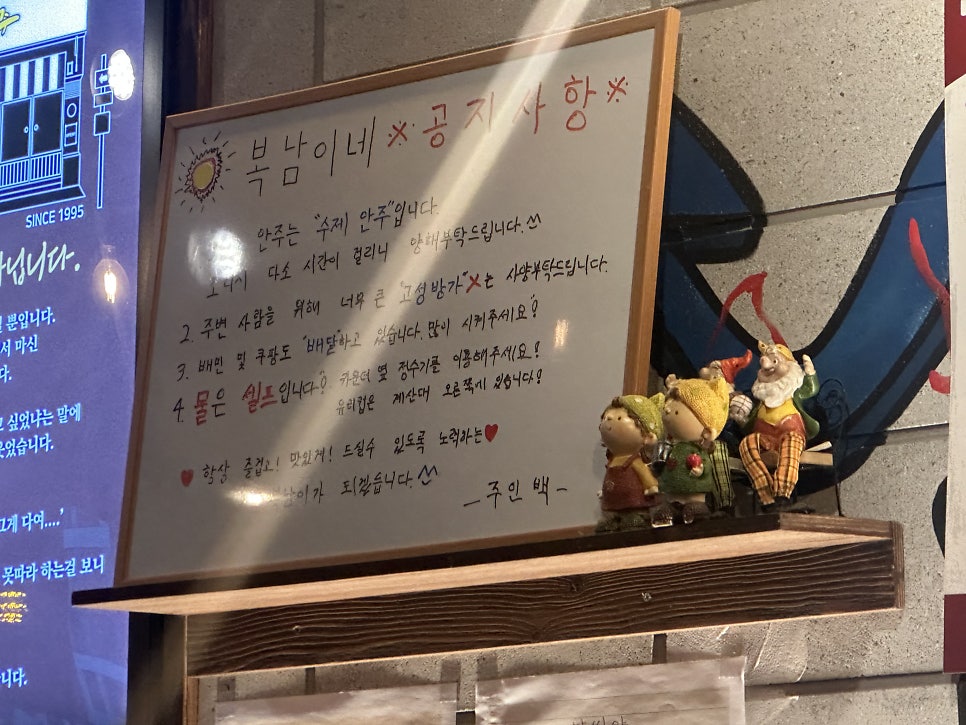 복남이네 ※공지사항※
안주는 "수제 안주"입니다.
다소 시간이 걸리니 양해부탁드립니다.^^
2. 주변 사람을 위해 너무 큰 "고성방가"X는 사양부탁드립니다.
3. 배민 및 쿠팡도 "배달"하고 있습니다. 많이 시켜주세요!
4. 물은 셀프입니다! 카운터 옆 정수기를 이용해주세요!
유리컵은 계산대 오른쪽에 있습니다!
♥ 항상 즐겁고! 맛있게! 드실수 있도록 노력하는♥
되겠습니다.^^
-주인 백-
SINCE 1995
아닙니다.
뿐입니다.
서 마신
다.
고 싶었냐는 말에
웃었습니다.
그게 다여....'
못따라 하는걸 보니
니다.